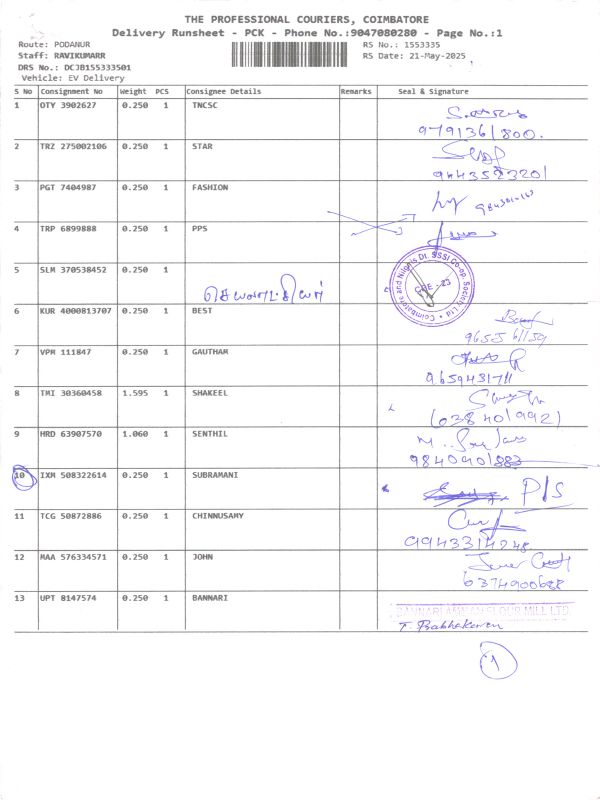 THE PROFESSIONAL COURIERS, COIMBATORE
Delivery Runsheet - PCK - Phone No.:9047080280 - Page No.:1
Route: PODANUR RS No.: 1553335
Staff: RAVIKUMARR RS Date: 21-May-2025
DRS No.: DCJB155333501
Vehicle: EV Delivery
S No Consignment No Weight PCS Consignee Details Remarks Seal & Signature
1 OTY 3902627 0.250 1 TNCSC
9791361800.
2 TRZ 275002106 0.250 1 STAR
9443523201
3 PGT 7404987 0.250 1 FASHION
4 TRP 6899888 0.250 1 PPS
5 SLM 370538452 0.250 1
Coimbatore and Nilgiris Dt. SSSI Co-op. Society Ltd
CBE - 23
6 KUR 4000813707 0.250 1 BEST
7 VPM 111847 0.250 1 GAUTHAM
9659431711
8 TMI 30360458 1.595 1 SHAKEEL
6383401992
9 HRD 63907570 1.060 1 SENTHIL
9840901883
10 IXM 508322614 0.250 1 SUBRAMANI P/S
11 TCG 50872886 0.250 1 CHINNUSAMY
9943314248
12 MAA 576334571 0.250 1 JOHN
6374900688
13 UPT 8147574 0.250 1 BANNARI
BANNARI AMMAN FLOUR MILL LTD
T. Prabhakaran
1